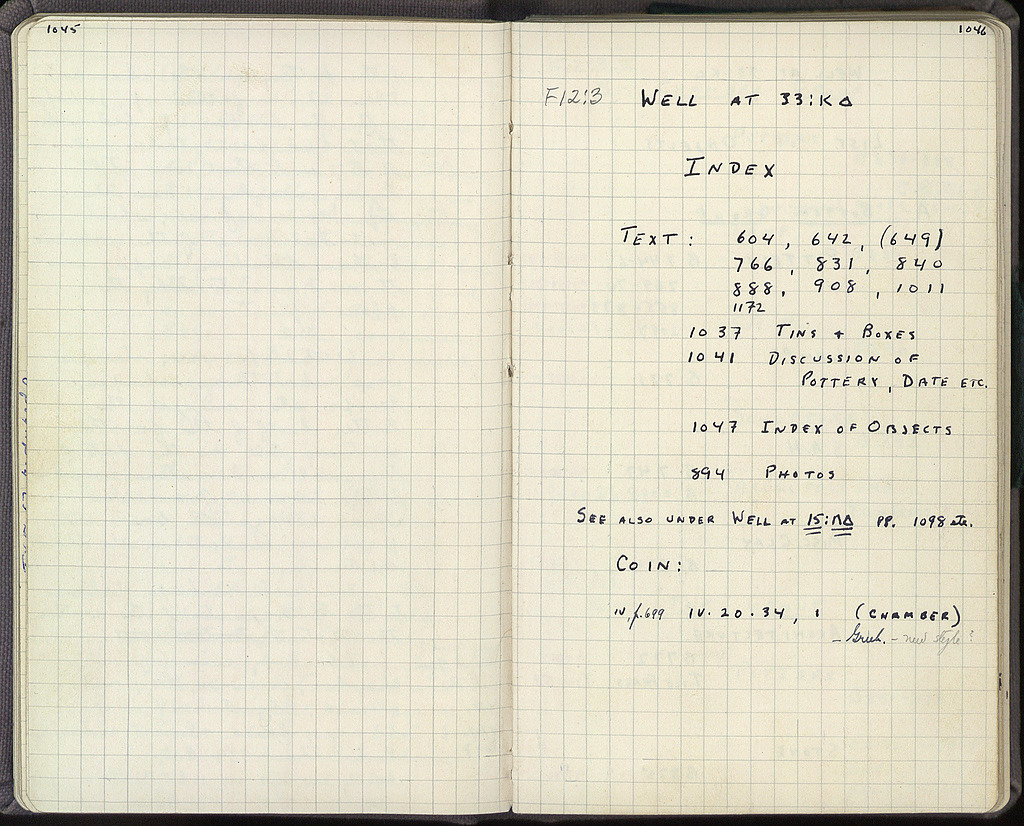 1045
1046
F12:3 WELL AT 33:KΔ
INDEX
TEXT: 604, 642, (649)
766, 831, 840
888, 908, 1011
1172
1037 TINS + BOXES
1041 DISCUSSION OF
POTTERY, DATE ETC.
1047 INDEX OF OBJECTS
894 PHOTOS
SEE ALSO UNDER WELL AT 15:ΠΔ PP. 1098 etc.
COIN:
IV, p. 699 IV.20.34, 1 (CHAMBER)
– Greek. – new style?